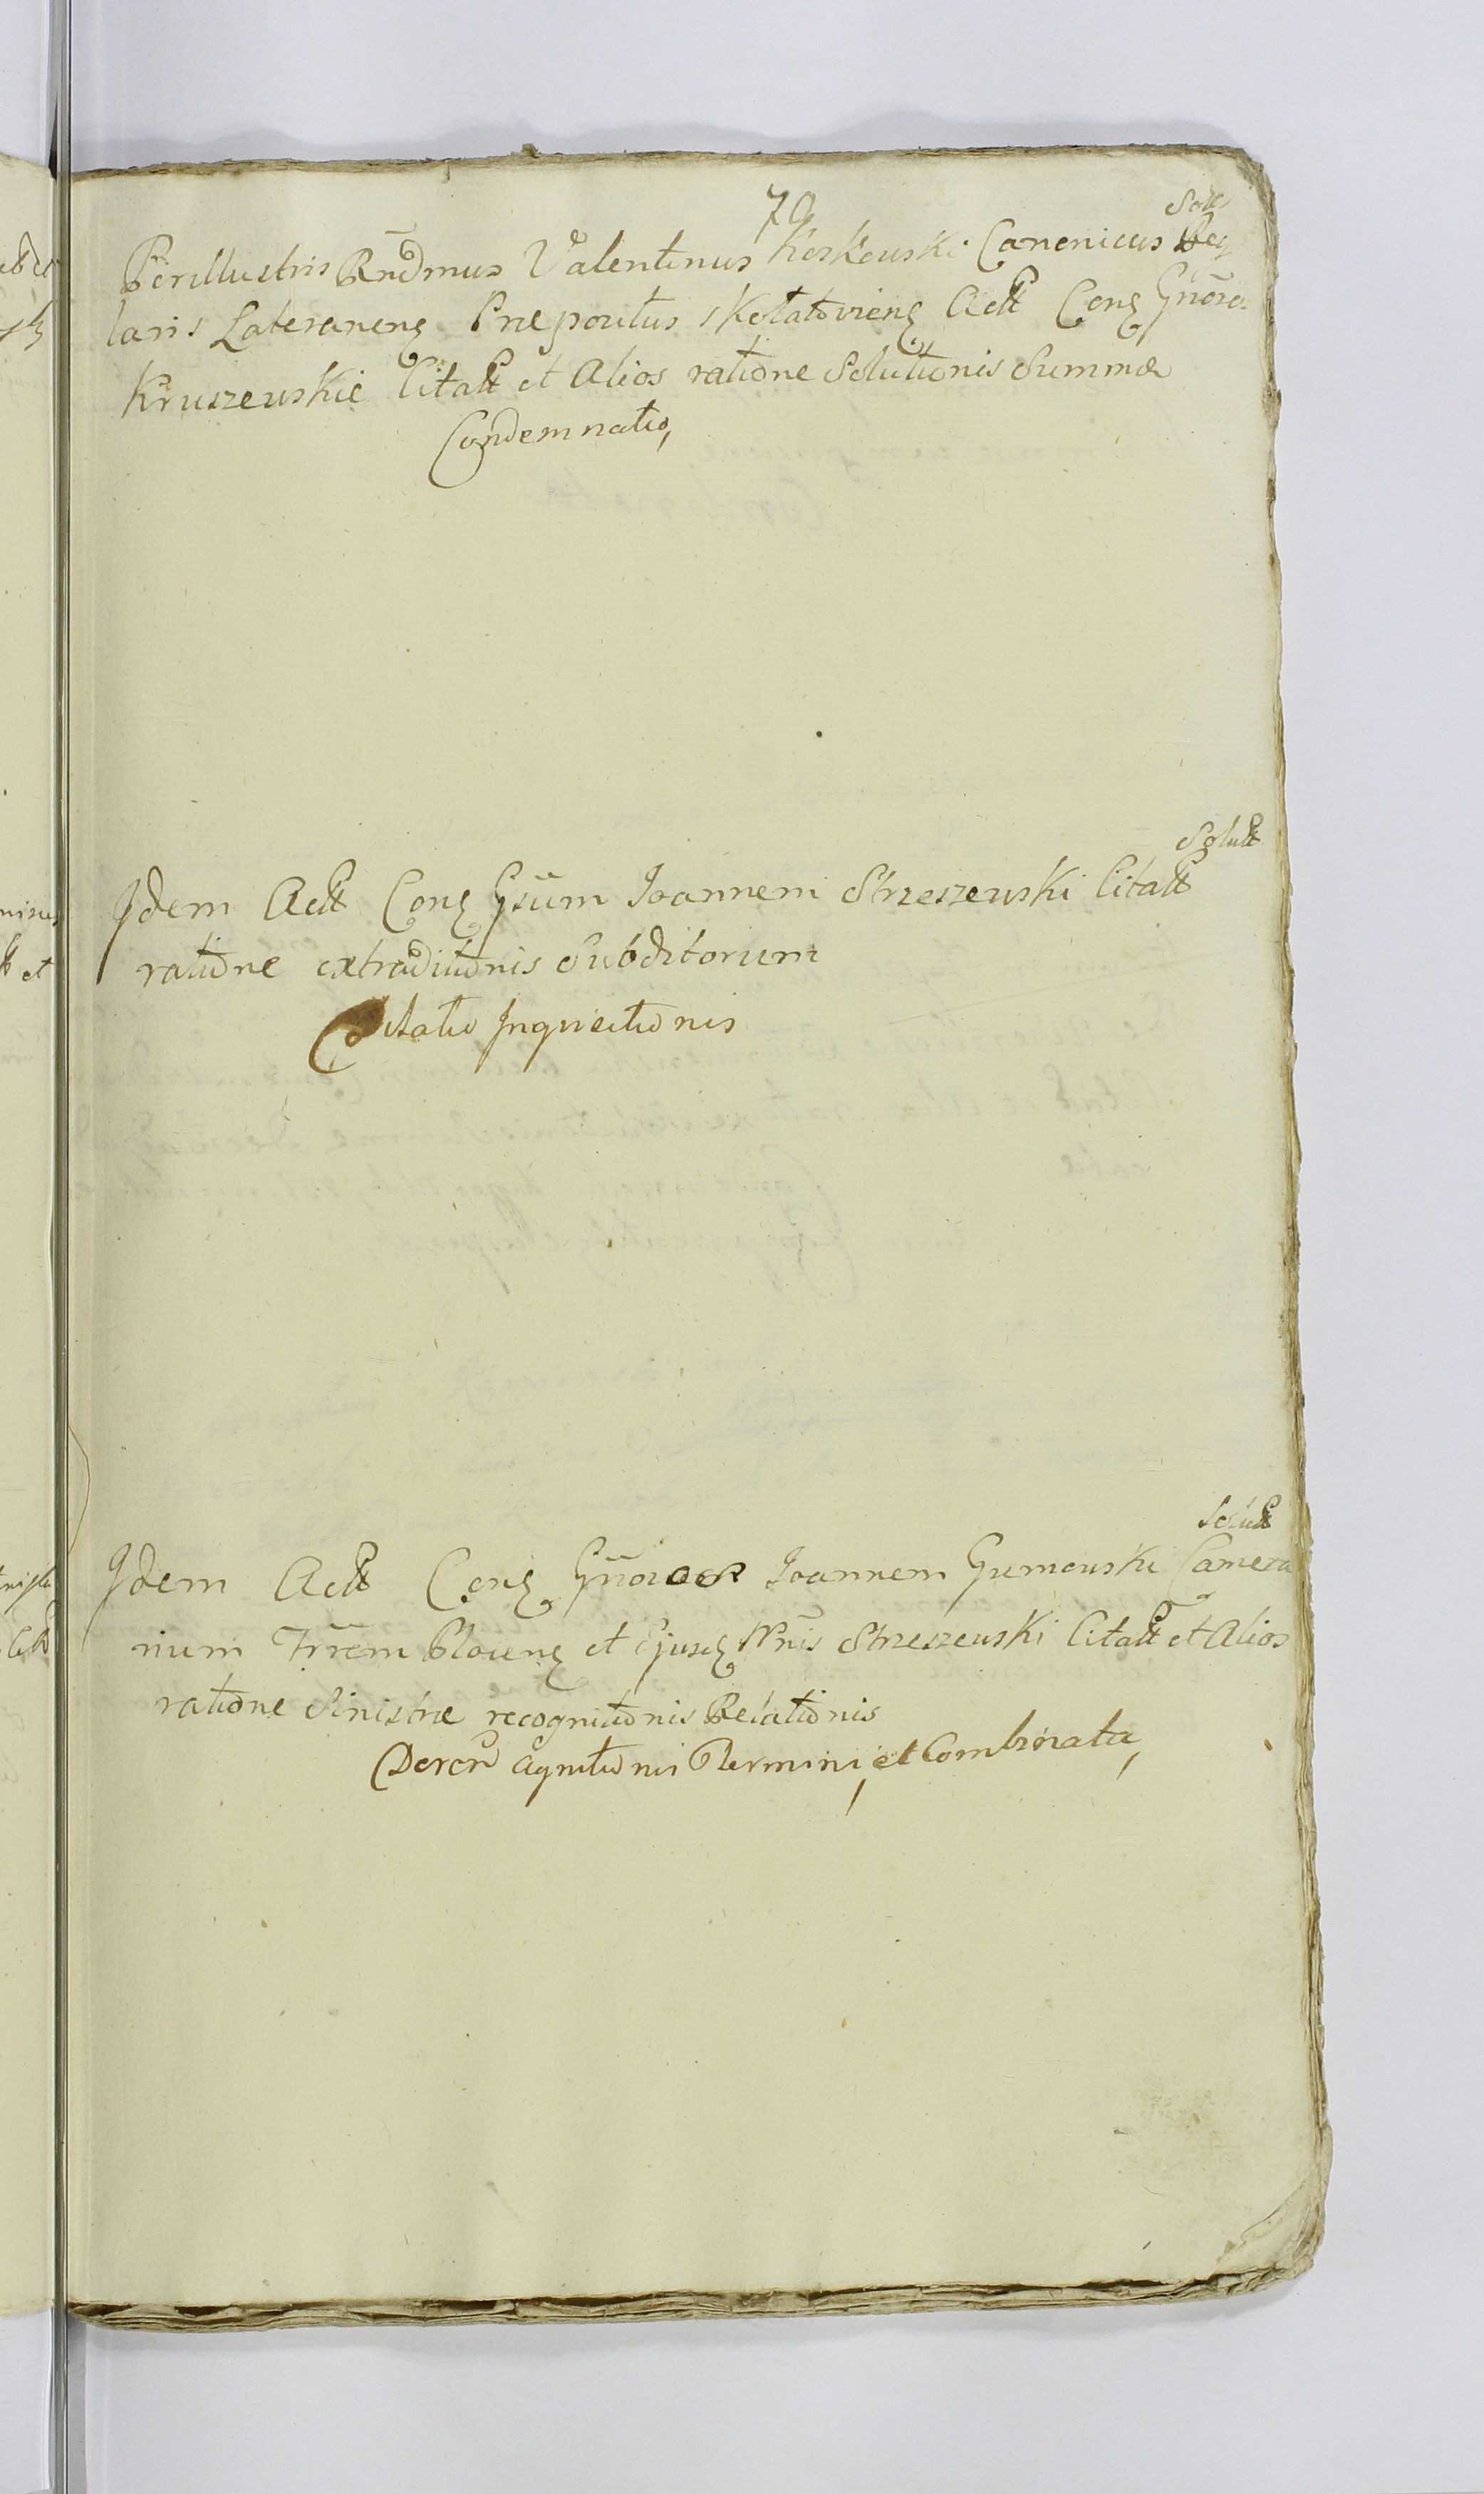 70
Perillustris Rndmus Valentinus Koskowski Canonicus Reg
laris Lateraneng Præpositus Skołatowieng Actt Cong Gnoros
Kruszewskie Citatt et Alios ratione Solutionis Summæ
Condemnatio,
Solutt
Idem Actt Cong Gsum Joannem Strzeszewski Citatt
ratione extraditionis Subditorum
Citatio Inquisitionis
Solutt
Idem Actt Cong Gnoros Joannem Gumowski Camera
rium Trrem Ploceng et Ejusdg Nris Strzeszewski Citatt et Alios
ratione Sinistræ recognitionis Relationis
Decer agnitionis Termini, et Combinata,